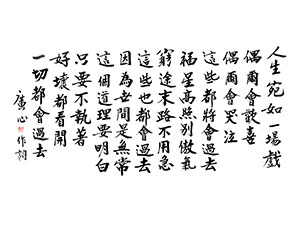 人生宛如一場戲
偶爾會歡喜
偶爾會哭泣
這些都將會過去
福星高照別傲氣
窮途末路不用急
這些也都會過去
因為世間是無常
這個道理要明白
只要不執著
好壞都看開
一切都會過去
廣心作詞